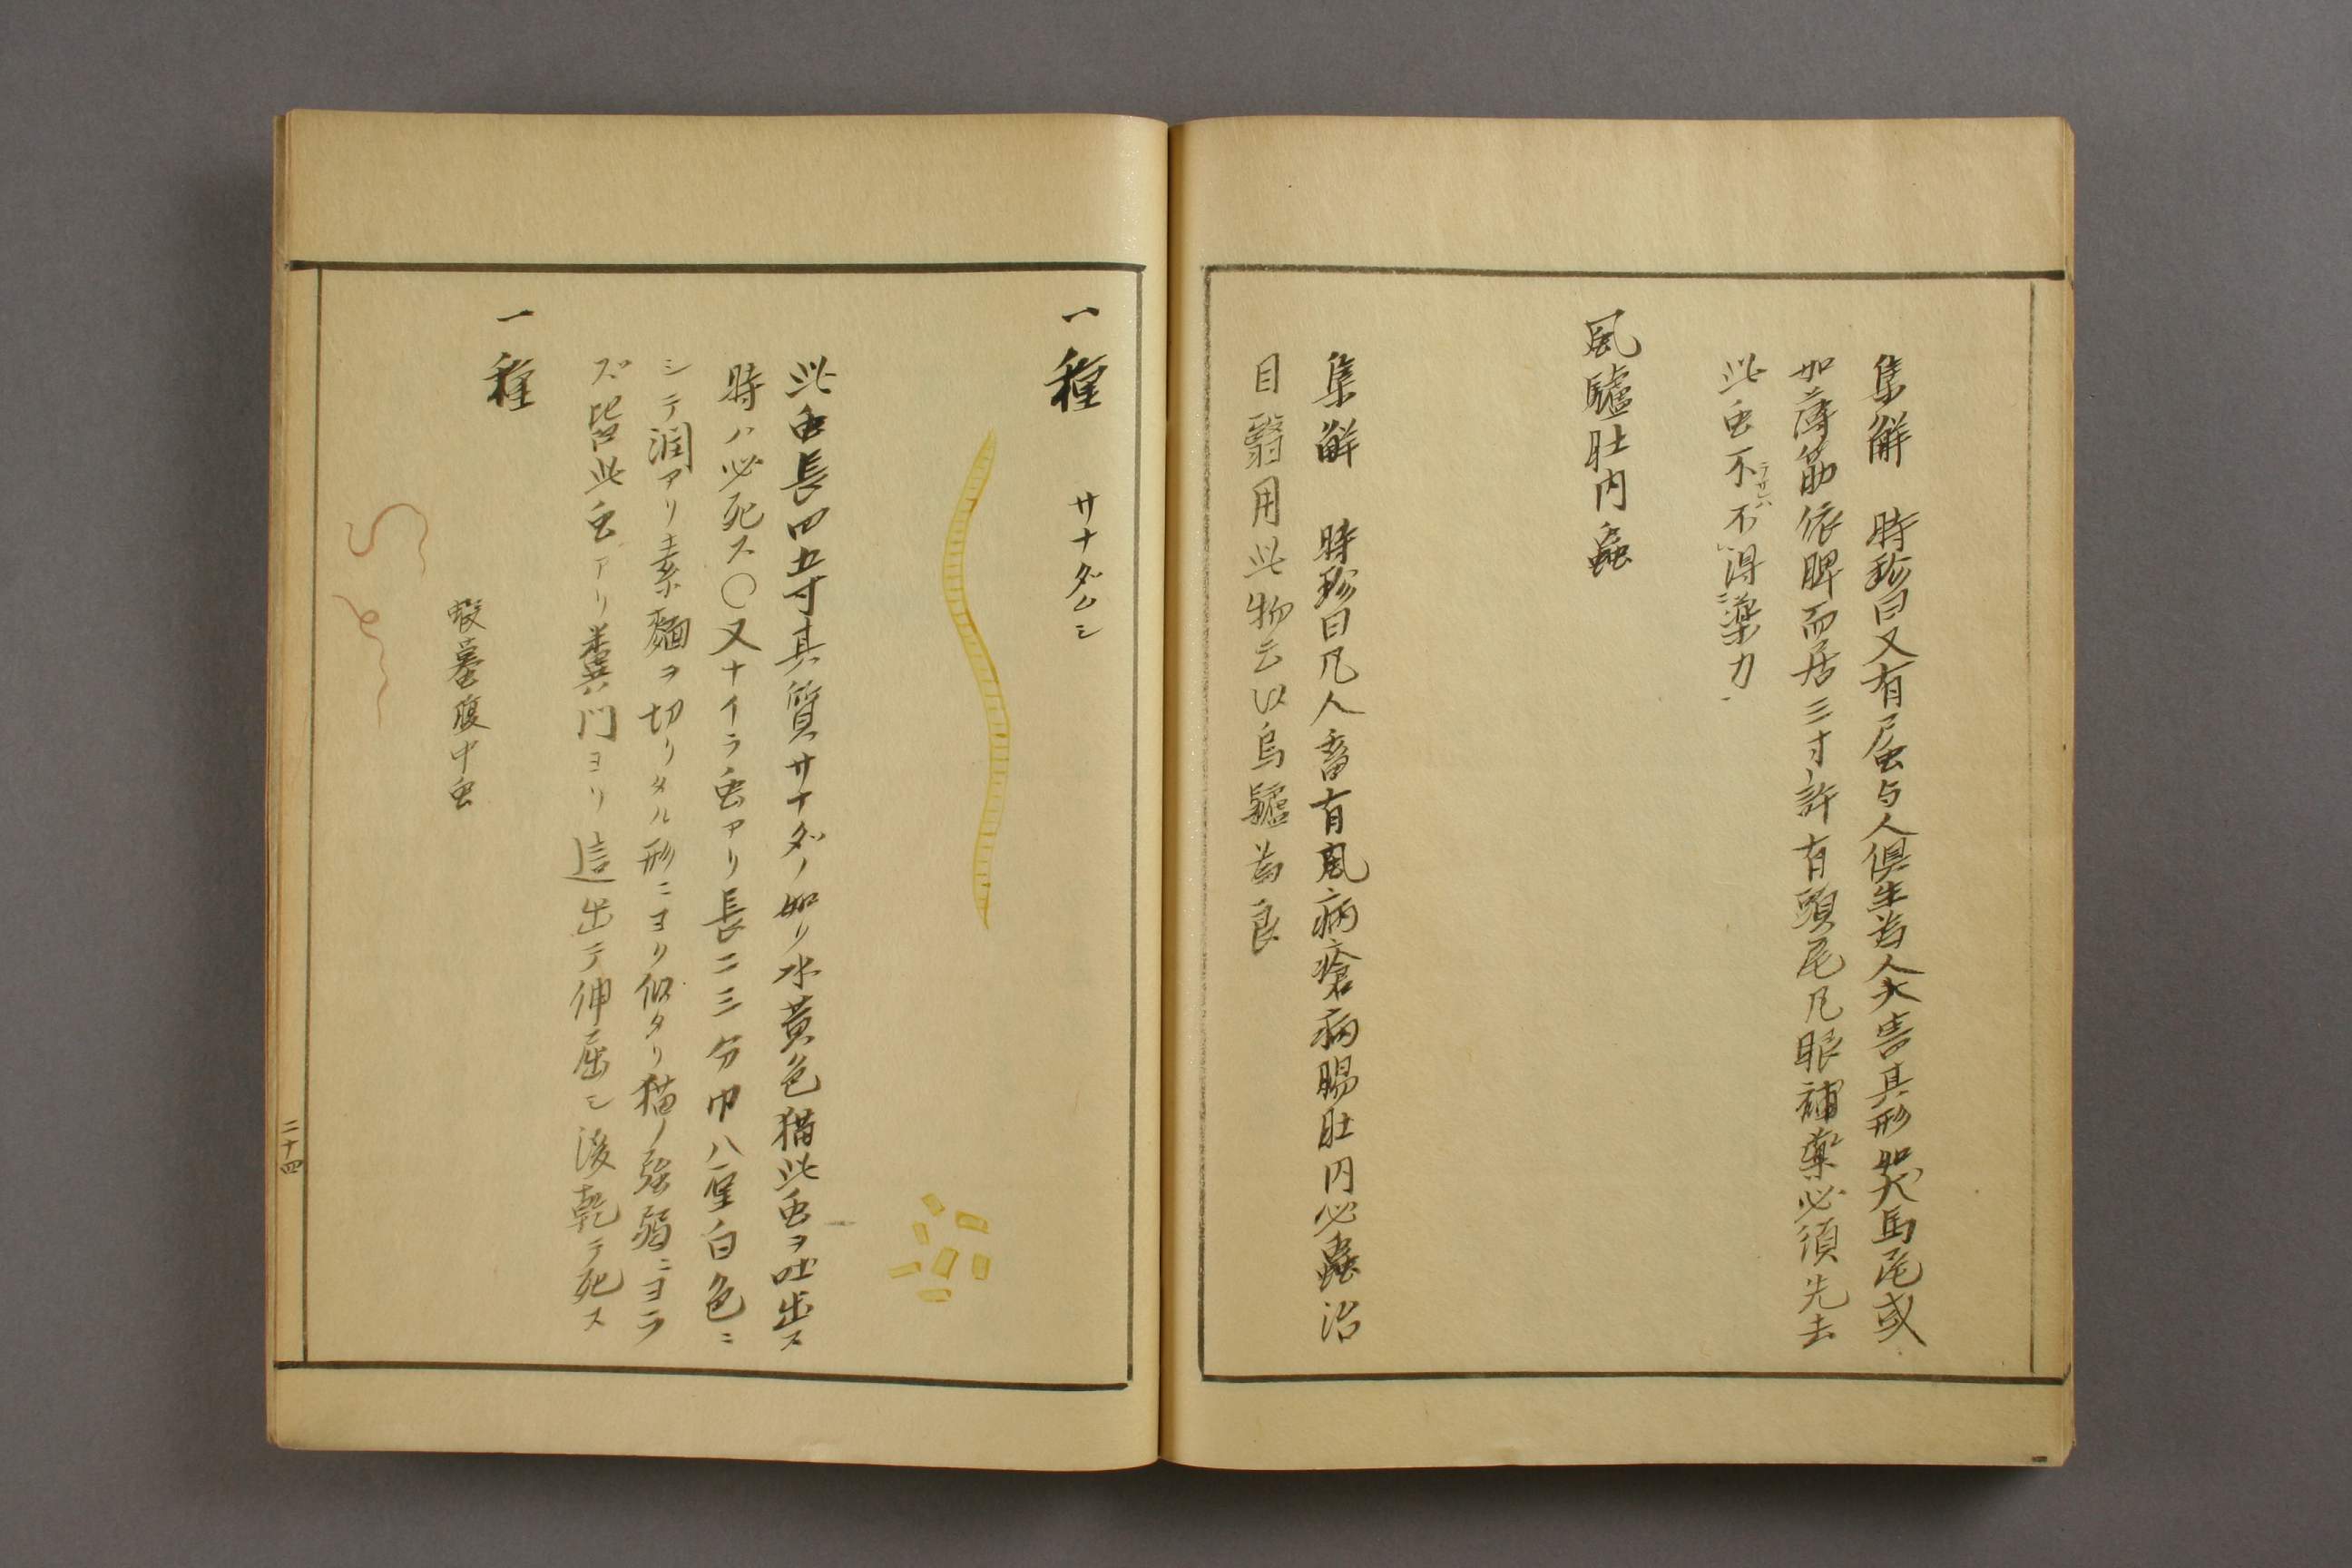 集解 時珍曰又有𡲬与人倶生為人大害其形如犬馬尾或
如薄筋依脾而居三寸許有頭尾凡眼補薬必須先去
此虫不テサレハ不得薬力
風驢肚内蟲
集解 時珍曰凡人畜有風病瘡病腸肚内必蟲治
目翳用此物云以烏驢為良
一種 サナダムシ
此虫長四五寸其質サナダノ如リ水黄色猫此虫ヲ吐出ス
時ハ必死ス〇又ナイラ虫アリ長二三分巾八厘白色ニ
シテ潤アリ素麺ヲ切リタル形ニヨリ似タリ猫ノ強弱ニヨラ
ズ皆此虫アリ糞門ヨリ這出テ伸屈シ後乾テ死ス
一種
蝦蟇腹中虫
二十四